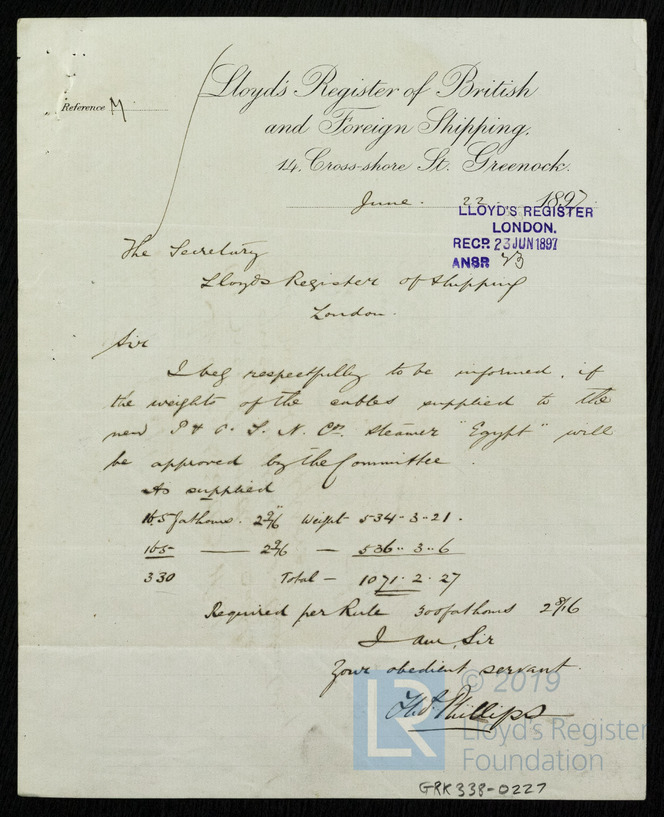 Lloyd's Register of British
and Foreign Shipping.
14, Cross-shore St. Greenock.
Reference M
June. 22 1897
LLOYD'S REGISTER
LONDON.
RECD. 23 JUN 1897
ANSR 23
The Secretary
Lloyds Register of Shipping
London.
Sir
I beg respectfully to be informed, if
the weights of the cables supplied to the
new P & O. S. N. Co. Steamer "Egypt" will
be approved by the Committee.
As supplied
165 fathoms. 2 9/16" Weight 534-3-21.
165 — 2 9/16 — 536..3..6
330 Total — 1071.2.27
Required per Rule 300 fathoms 2 8/16
I am, Sir
Your obedient servant
Thos. Phillips
© 2019
LR
Lloyd's Register
Foundation
GRK338-0227